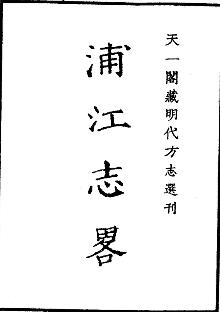 天一閣藏明代方志選刊
浦江志畧